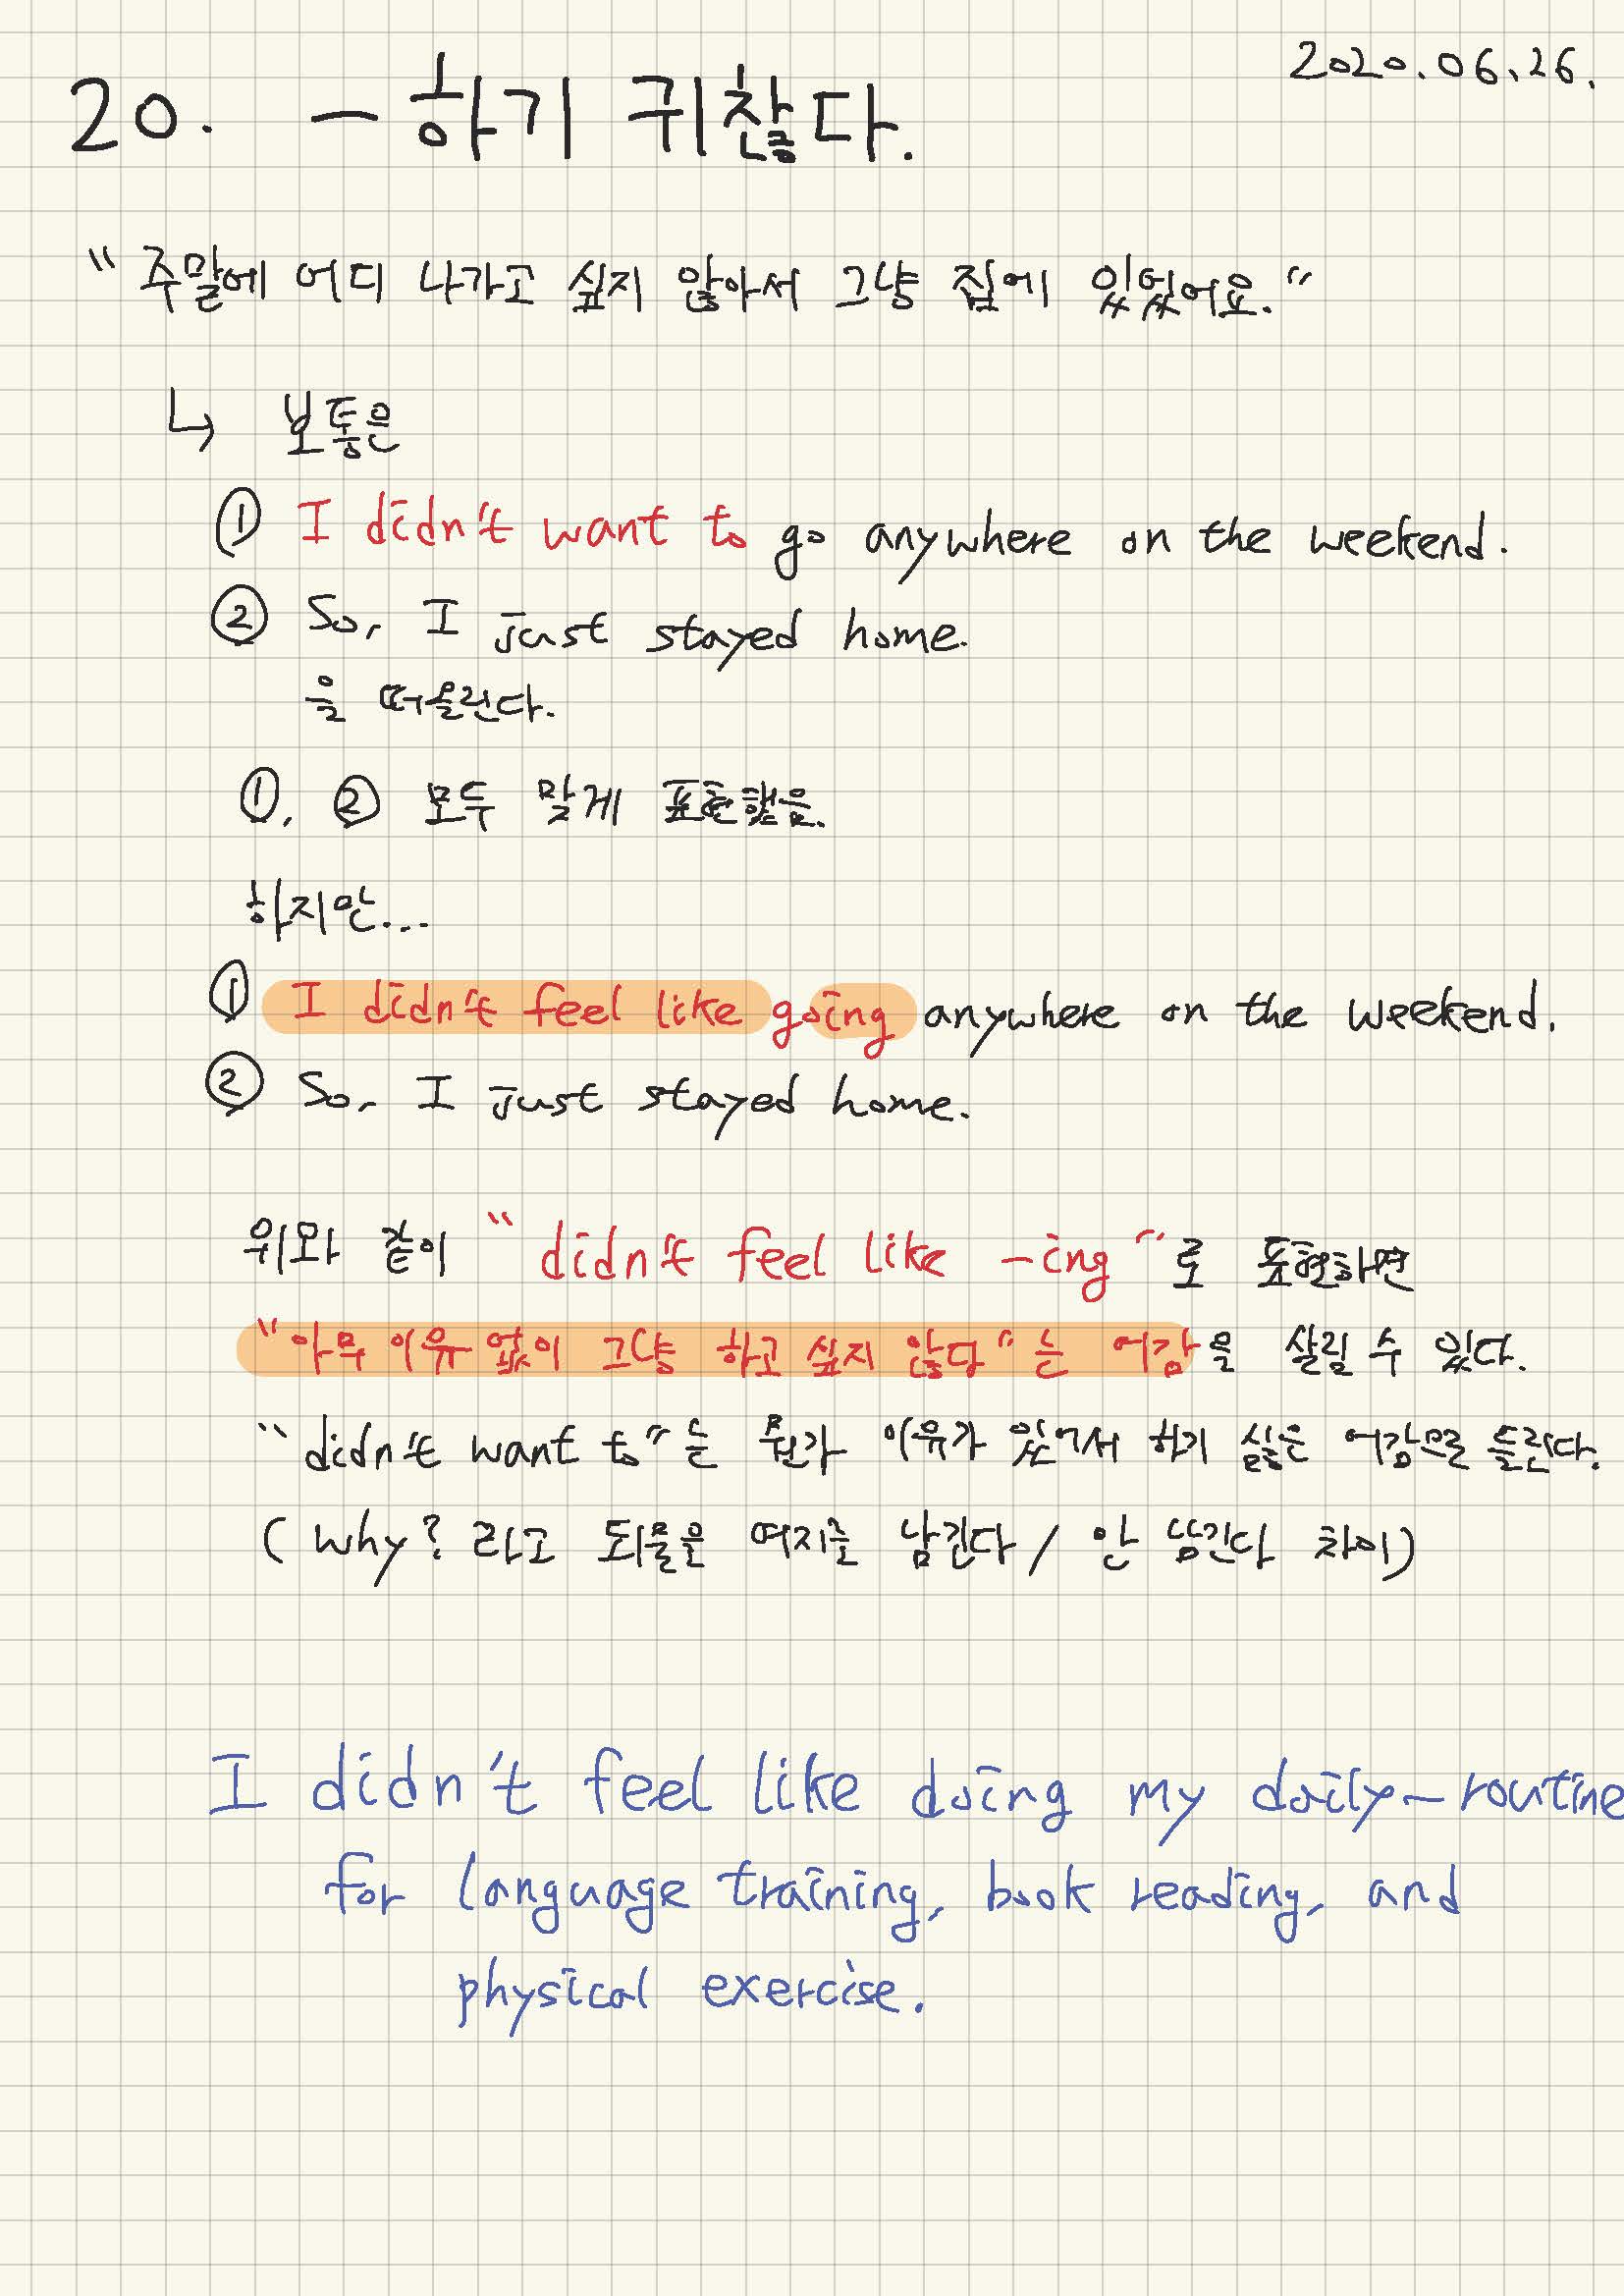 2020.06.26.
20. -하기 귀찮다.
"주말에 어디 나가고 싶지 않아서 그냥 집에 있었어요."
↳ 보통은
① I didn't want to go anywhere on the weekend.
② So, I just stayed home.
을 떠올린다.
①, ② 모두 맞게 표현했음.
하지만...
① I didn't feel like going anywhere on the weekend.
② So, I just stayed home.
위와 같이 "didn't feel like -ing"로 표현하면
"아무 이유 없이 그냥 하고 싶지 않다"는 어감을 살릴 수 있다.
"didn't want to"는 뭔가 이유가 있어서 하기 싫은 어감으로 들린다.
(why? 라고 되물을 여지를 남긴다 / 안 남긴다 차이)
I didn't feel like doing my daily-routine
for language training, book reading, and
physical exercise.